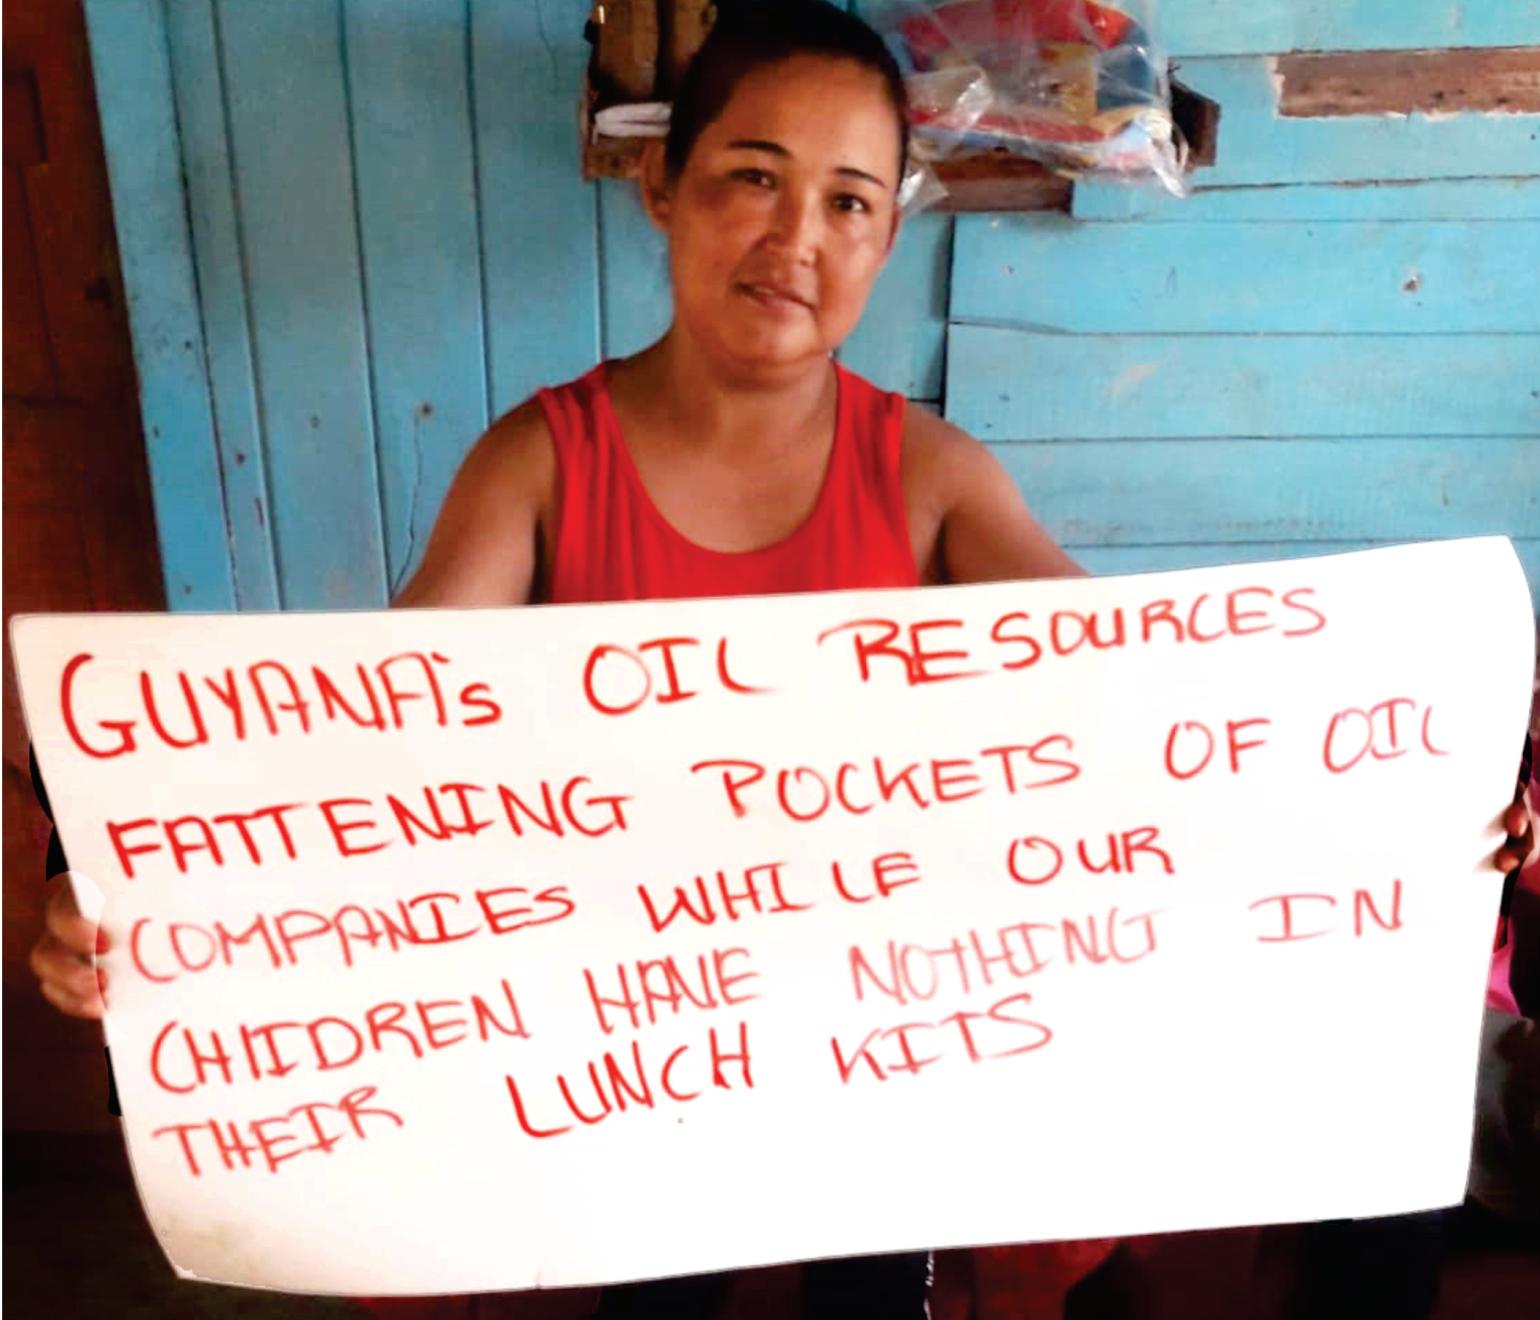 GUYANA's OIL RESOURCES
FATTENING POCKETS OF OIL
COMPANIES WHILE OUR
CHILDREN HAVE NOTHING IN
THEIR LUNCH KITS